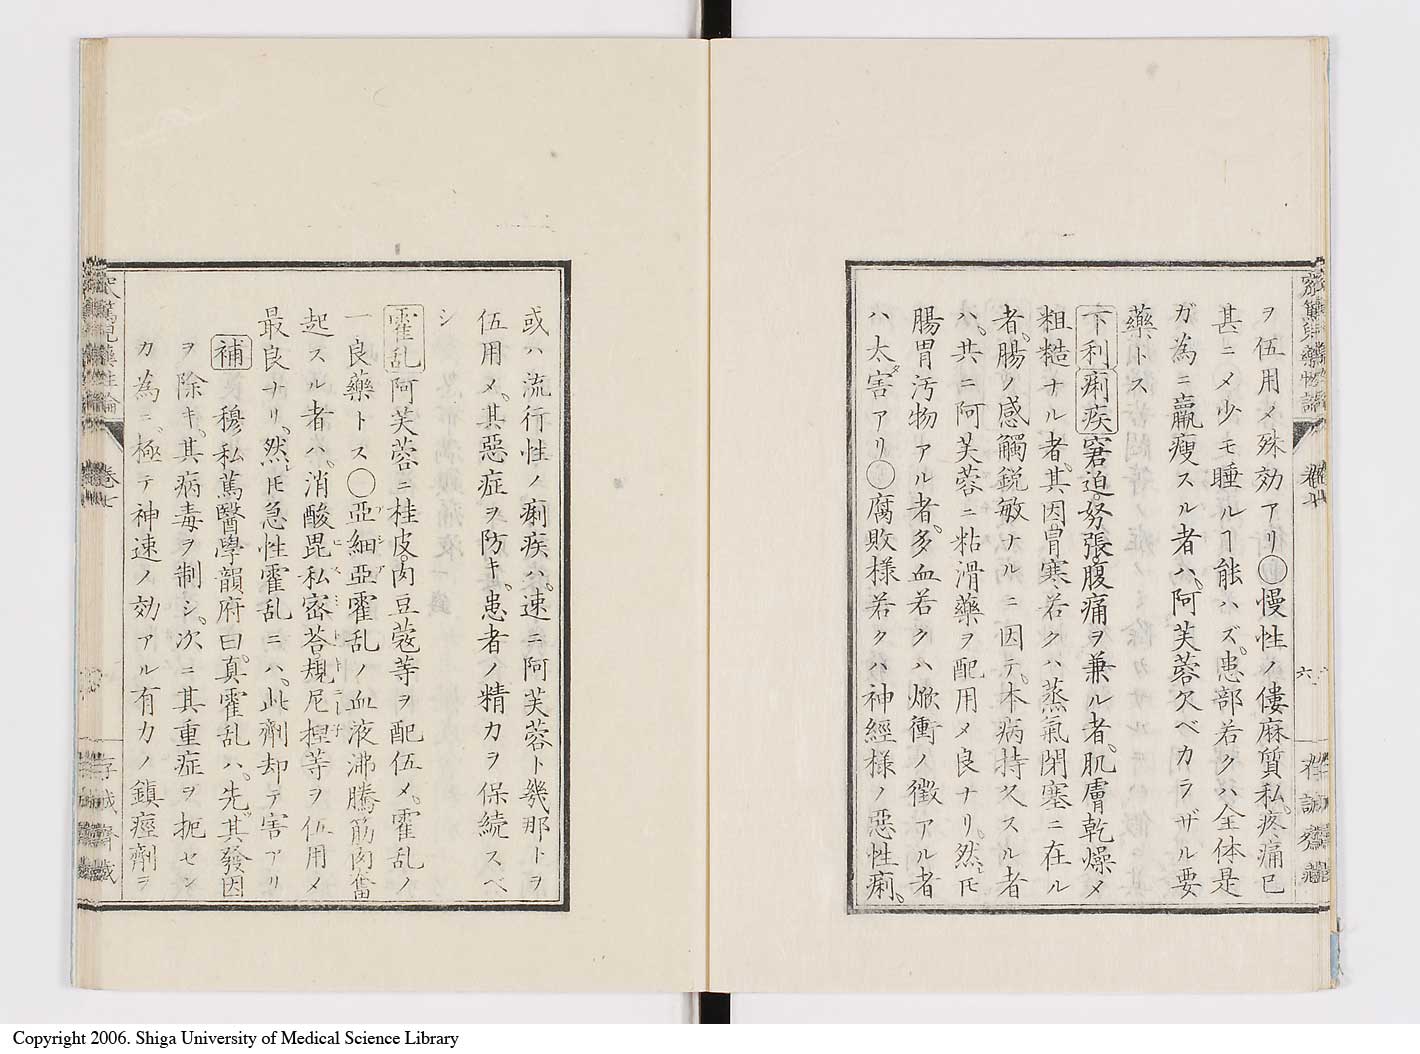 ヲ伍用メ殊効アリ○慢性ノ僂麻質私、疼痛已
甚ニメ少モ睡ルヿ能ハズ、患部若クハ全体是
ガ為ニ羸痩スル者ハ、阿芙蓉欠ベカラザル要
藥トス
下利 痢疾 窘迫、努張、腹痛ヲ兼ル者、肌膚乾燥メ
粗糙ナル者、其因、胃寒若クハ蒸氣閉塞ニ在ル
者、腸ノ感觸鋭敏ナルニ因テ、本病持久スル者
ハ、共ニ阿芙蓉ニ粘滑藥ヲ配用メ良ナリ、然ヒ㇓
腸胃汚物アル者、多血若クハ焮衝ノ徴アル者
ハ太害アリ○腐敗様若クハ神經様ノ惡性痢、
巻七
六
或ハ流行性ノ痢疾ハ、速ニ阿芙蓉ト幾那トヲ
伍用メ、其惡症ヲ防キ、患者ノ精力ヲ保続スベ
シ
霍乱 阿芙蓉ニ桂皮、肉豆蔲等ヲ配伍メ、霍乱ノ
一良藥トス○亞細亞霍乱ノ血液沸騰、筋肉畨
起スル者ハ、消酸毘私密荅、規尼捏等ヲ伍用メ
最良ナリ、然𪜈急性霍乱ニハ、此劑却テ害アリ
補 穆私篤醫學韻府曰、真霍乱ハ、先ヅ其發因
ヲ除キ、其病毒ヲ制シ、次ニ其重症ヲ扼セン
カ為ニ、極テ神速ノ効アル有力ノ鎮痙劑ヲ
巻七
Copyright 2006. Shiga University of Medical Science Library